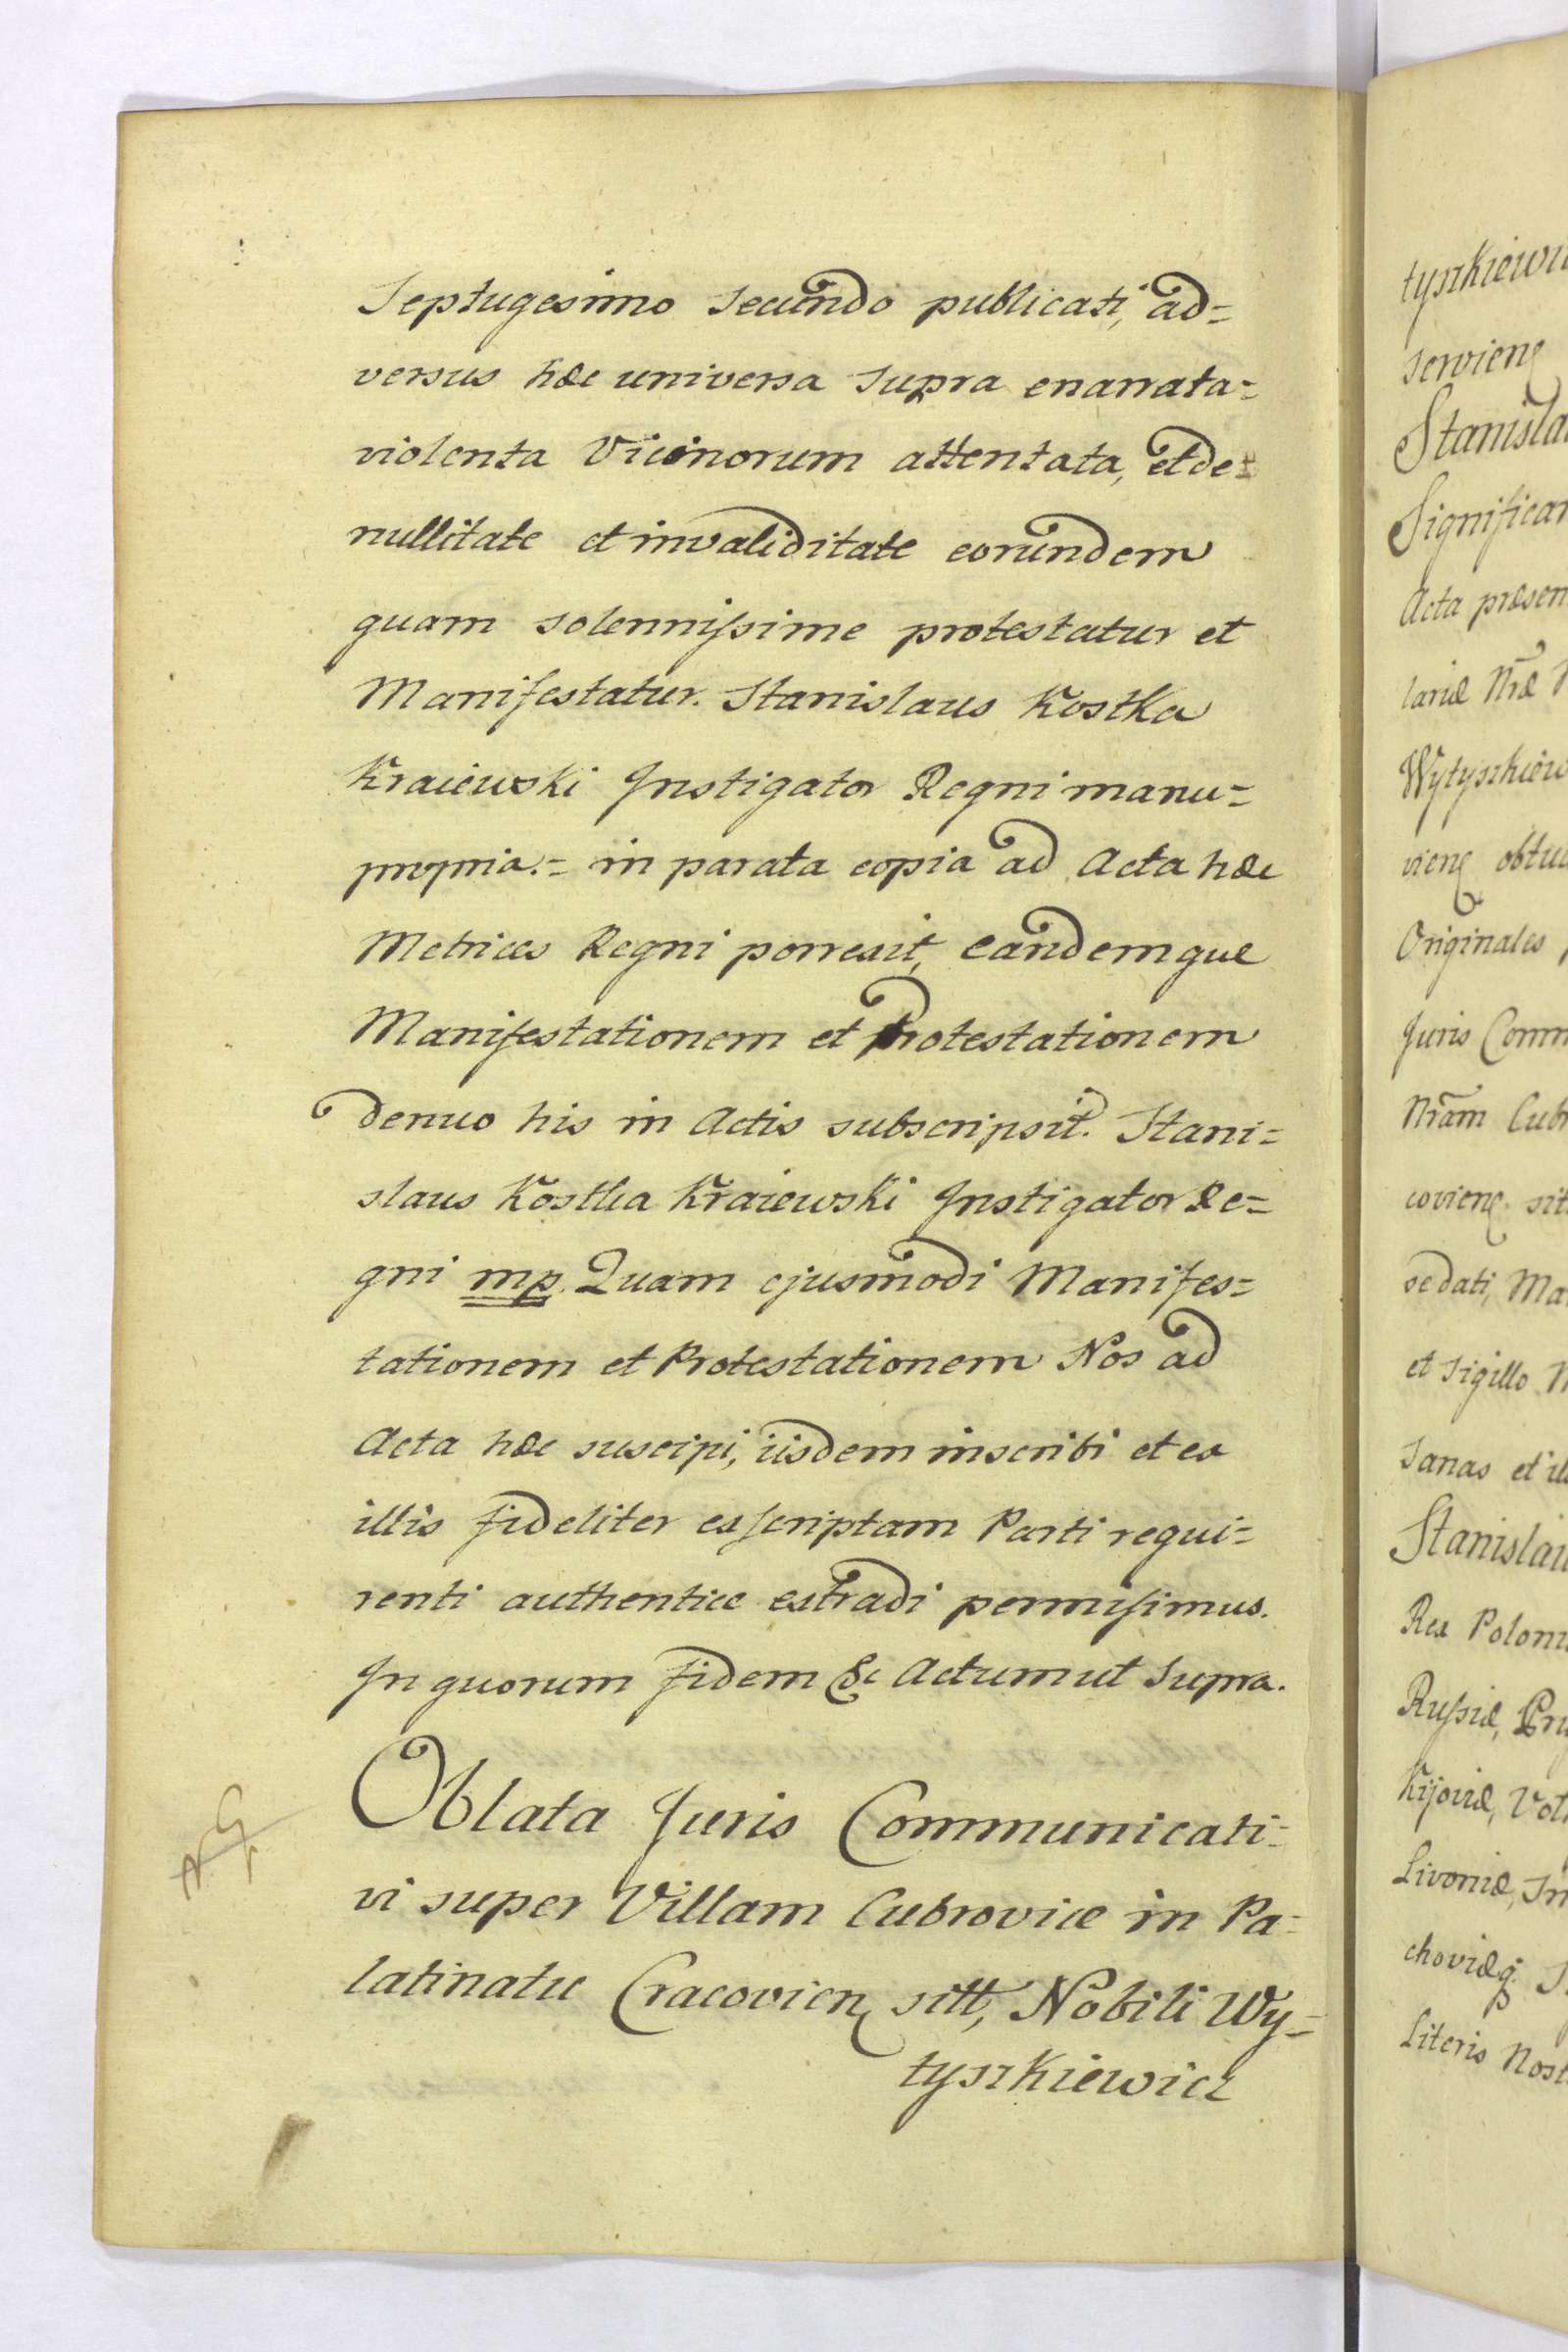 Septugesimo Secundo publicati, ad=
versus hæc universa supra enarrata=
violenta Vicinorum attentata, et de=
nullitate et invaliditate eorundem
quam solennissime protestatur et
Manifestatur. Stanislaus Kostka
Kraiewski Instigator Regni manu=
propria.= in parata copia ad Acta hæc
Metrices Regni porrexit, eandemque
Manifestationem et Protestationem
denuo his in Actis subscripsit. Stani=
slaus Kostka Kraiewski Instigator Re=
gni mp. Quam ejusmodi Manifes=
tationem et Protestationem Nos ad
Acta hæc suscipi, iisdem inscribi et ex
illis fideliter exscriptam Parti requi=
renti authentice extradi permisimus.
In quorum fidem &c Actum ut Supra.
Oblata Juris Communicati=
vi super Villam Cubrovice in Pa=
latinatu Cracovien sitt, Nobili Wy=
tyszkiewicz
tyszkiewi
servien
Stanisla
Significa
Acta præsen
lariæ Nræ
Wytyszkiew
vien obtu
Originales
Juris Comm
Nram Cub
covien. sit
se dati, Ma
et Sigillo N
Sanas et il
Stanislau
Rex Poloni
Russiæ, Pru
Kijoviæ, Vol
Livoniæ, Sm
choviæq
Literis Nost